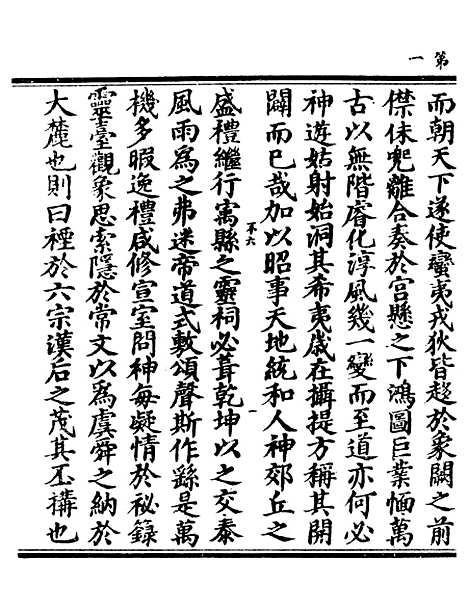 第一
而朝天下遂使蠻夷戎狄皆趍於象闕之前
僸佅兜離合奏於宮懸之下鴻圖巨業愐萬
古以無階睿化淳風幾一變而至道亦何必
神遊姑射始洞其希夷歲在攝提方稱其開
闢而已哉加以昭事天地統和人神郊丘之
不六
盛禮繼行寓縣之靈祠必葺乾坤以之交泰
風雨為之弗迷帝道式敷頌聲斯作繇是萬
機多暇逸禮咸修宣室問神每凝情於祕錄
靈臺觀象思索隱於常文以為虞舜之納於
大麓也則曰禋於六宗漢后之茂其丕構也